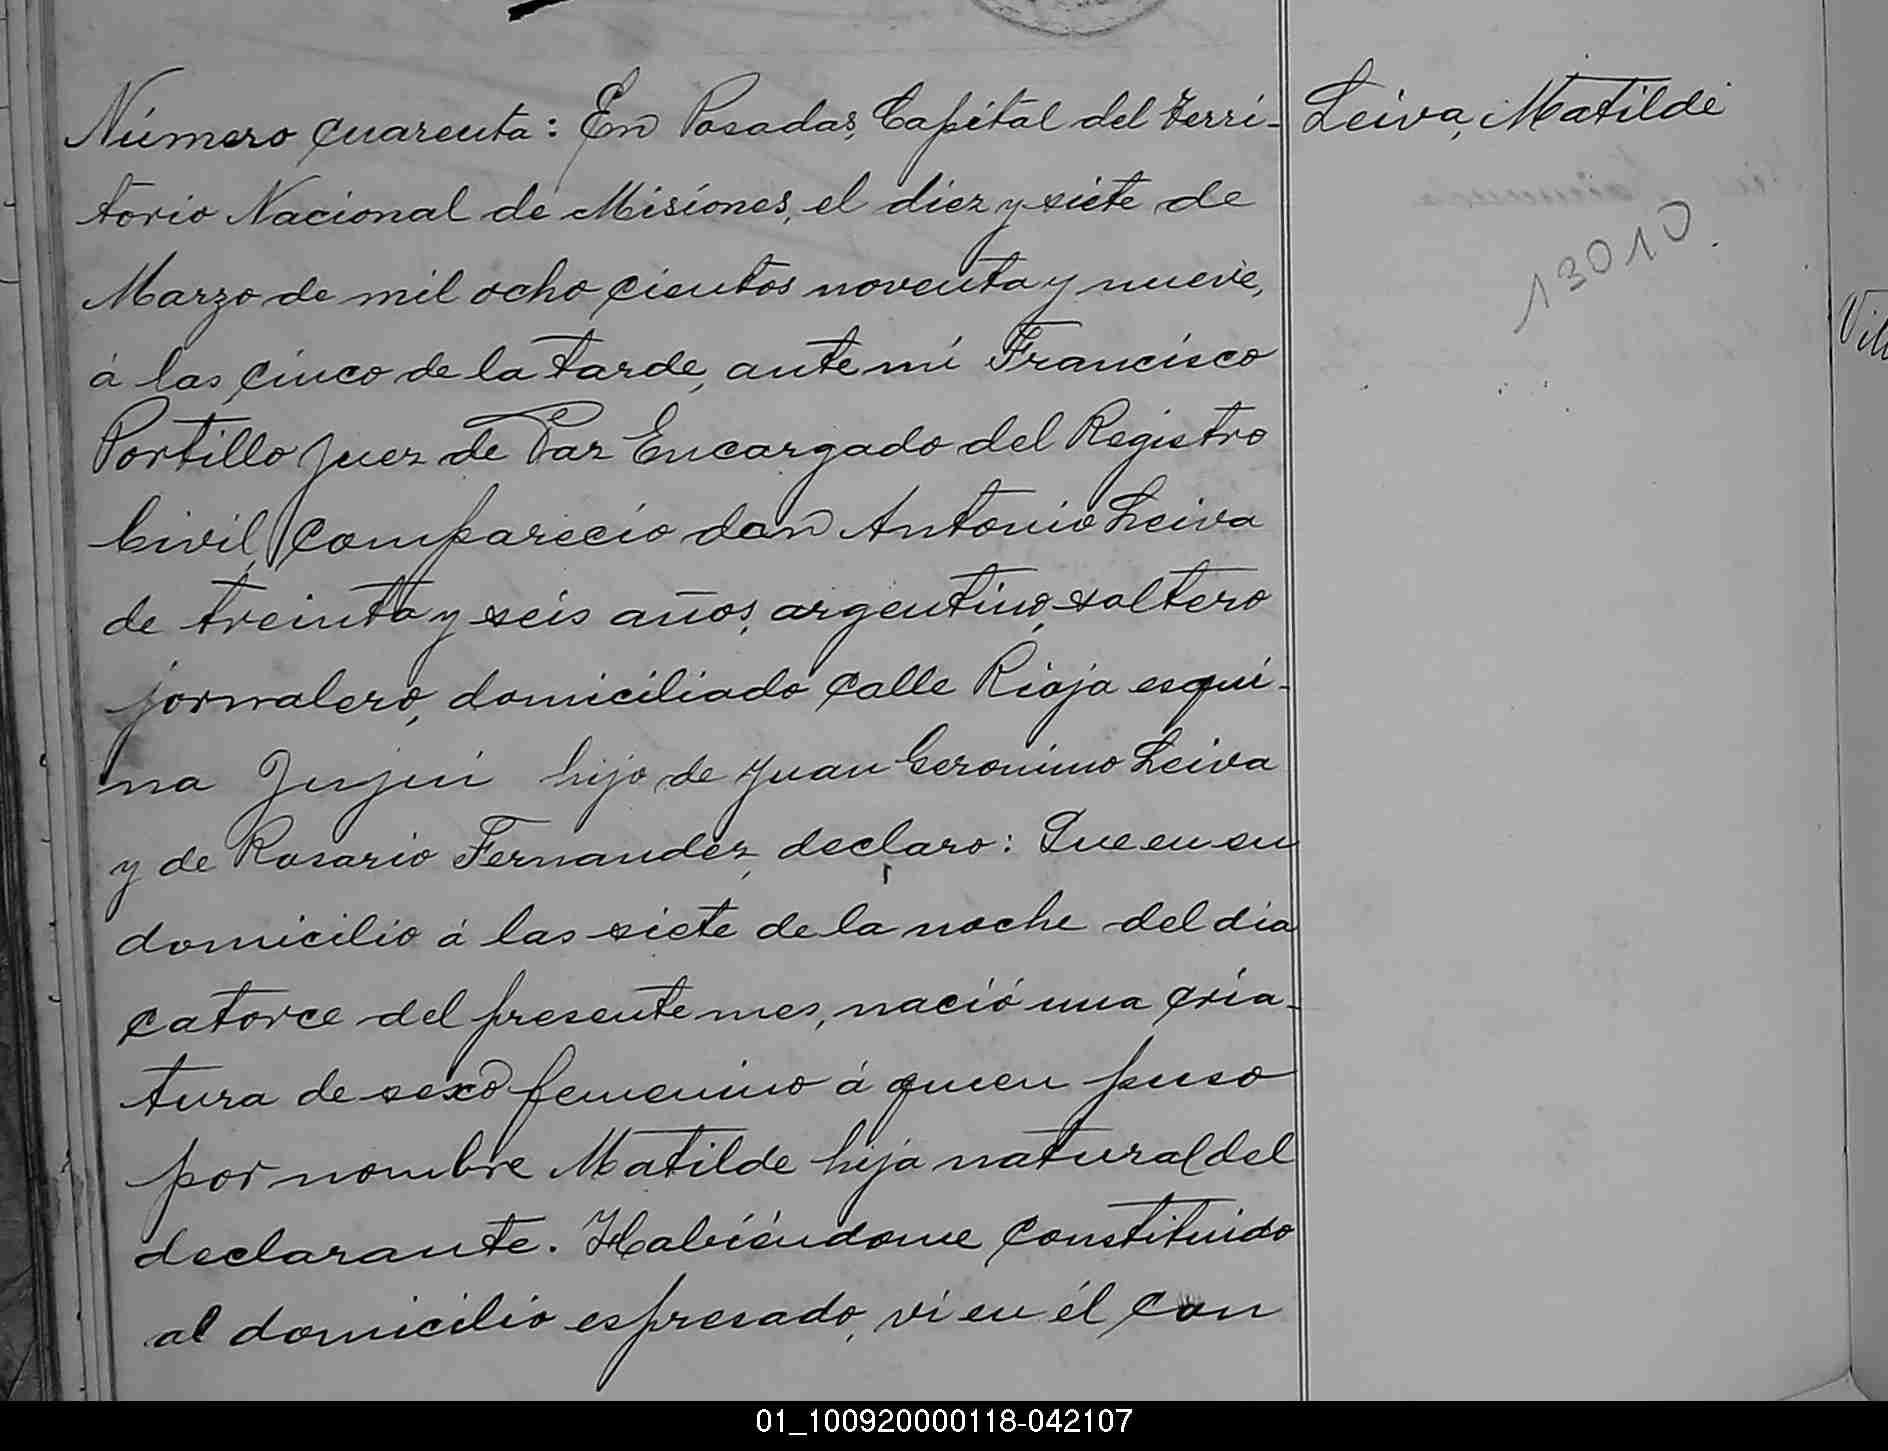 Número cuarenta: En Posadas, Capital del Terri-
torio Nacional de Misiones, el diez y siete de
Marzo de mil ocho cientos noventa y nueve,
á las cinco de la tarde, ante mí Francisco
Portillo Juez de Paz Encargado del Registro
Civil, compareció don Antonio Leiva
de treinta y seis años, argentino, soltero
jornalero, domiciliado calle Rioja esqui-
na Jujui hijo de Juan Geronimo Leiva
y de Rosario Fernandez, declaro: Que en su
domicilio á las siete de la noche del dia
catorce del presente mes, nació una cria-
tura de sexo femenino á quien puso
por nombre Matilde hija natural del
declarante. Habiéndome constituido
al domicilio espresado, ví en él con
Leiva, Matilde
13010
01_100920000118-042107